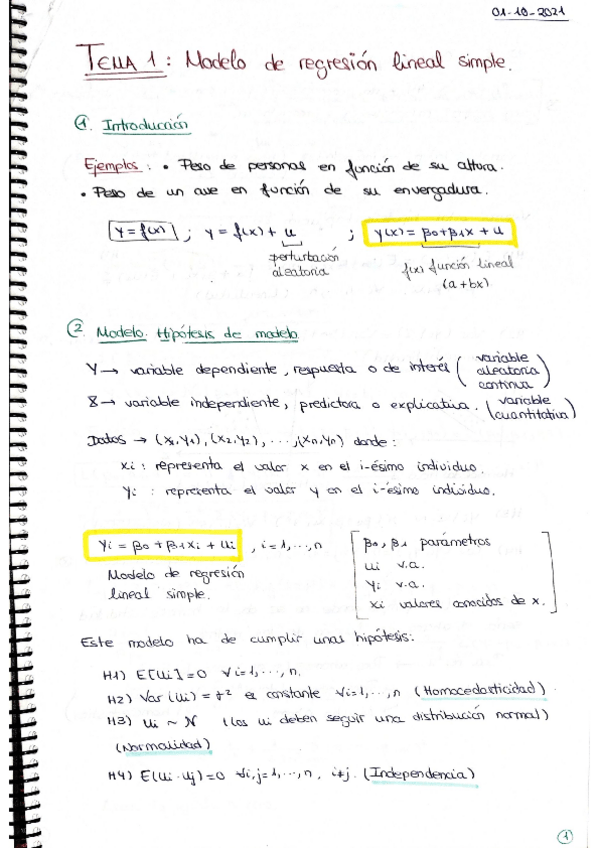 01-10-2021
TEMA 1: Modelo de regresión lineal simple.
1. Introducción
Ejemplos: • Peso de personas en función de su altura.
• Peso de un ave en función de su envergadura.
y = f(x) ; y = f(x) + u ; y(x) = β0+β1x + u
perturbación aleatoria
f(x) función lineal (a+bx)
2. Modelo. Hipótesis de modelo
Y → variable dependiente, respuesta o de interés (variable aleatoria continua)
X → variable independiente, predictora o explicativa. (variable cuantitativa)
Datos → (x1,y1), (x2,y2), ..., (xn,yn) donde:
xi : representa el valor x en el i-ésimo individuo.
yi : representa el valor y en el i-ésimo individuo.
yi = β0 + β1xi + ui , i=1,...,n
Modelo de regresión
lineal simple.
β0, β1 parámetros
ui v.a.
yi v.a.
xi valores conocidos de x.
Este modelo ha de cumplir unas hipótesis:
H1) E[ui]=0 ∀i=1,...,n.
H2) Var(ui) = σ² es constante ∀i=1,...,n (Homocedasticidad).
H3) ui ~ N (los ui deben seguir una distribución normal)
(Normalidad)
H4) E(ui·uj)=0 ∀i,j=1,...,n, i≠j. (Independencia)
1